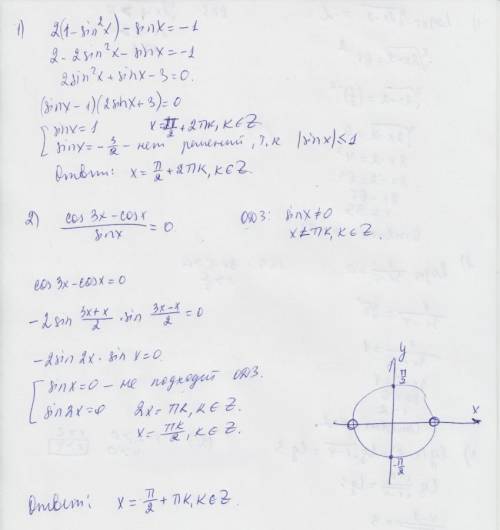 1) 2(1-sin²x)-sinx=-1
2-2sin²x-sinx=-1
2sin²x+sinx-3=0.
(sinx-1)(2sinx+3)=0
[sinx=1 x=π/2+2πk, k∈Z
[sinx=-3/2 - нет решений, т.к |sinx|≤1
Ответ: x=π/2+2πk, k∈Z.
2) (cos3x-cosx)/sinx=0 ОДЗ: sinx≠0
x≠πk, k∈Z.
cos3x-cosx=0
-2sin (3x+x)/2 · sin (3x-x)/2=0
-2sin2x·sinx=0.
[sinx=0 - не подходит ОДЗ.
[sin2x=0 2x=πk, k∈Z.
x=πk/2, k∈Z.
y
π/2
x
-π/2
Ответ: x=π/2+πk, k∈Z.